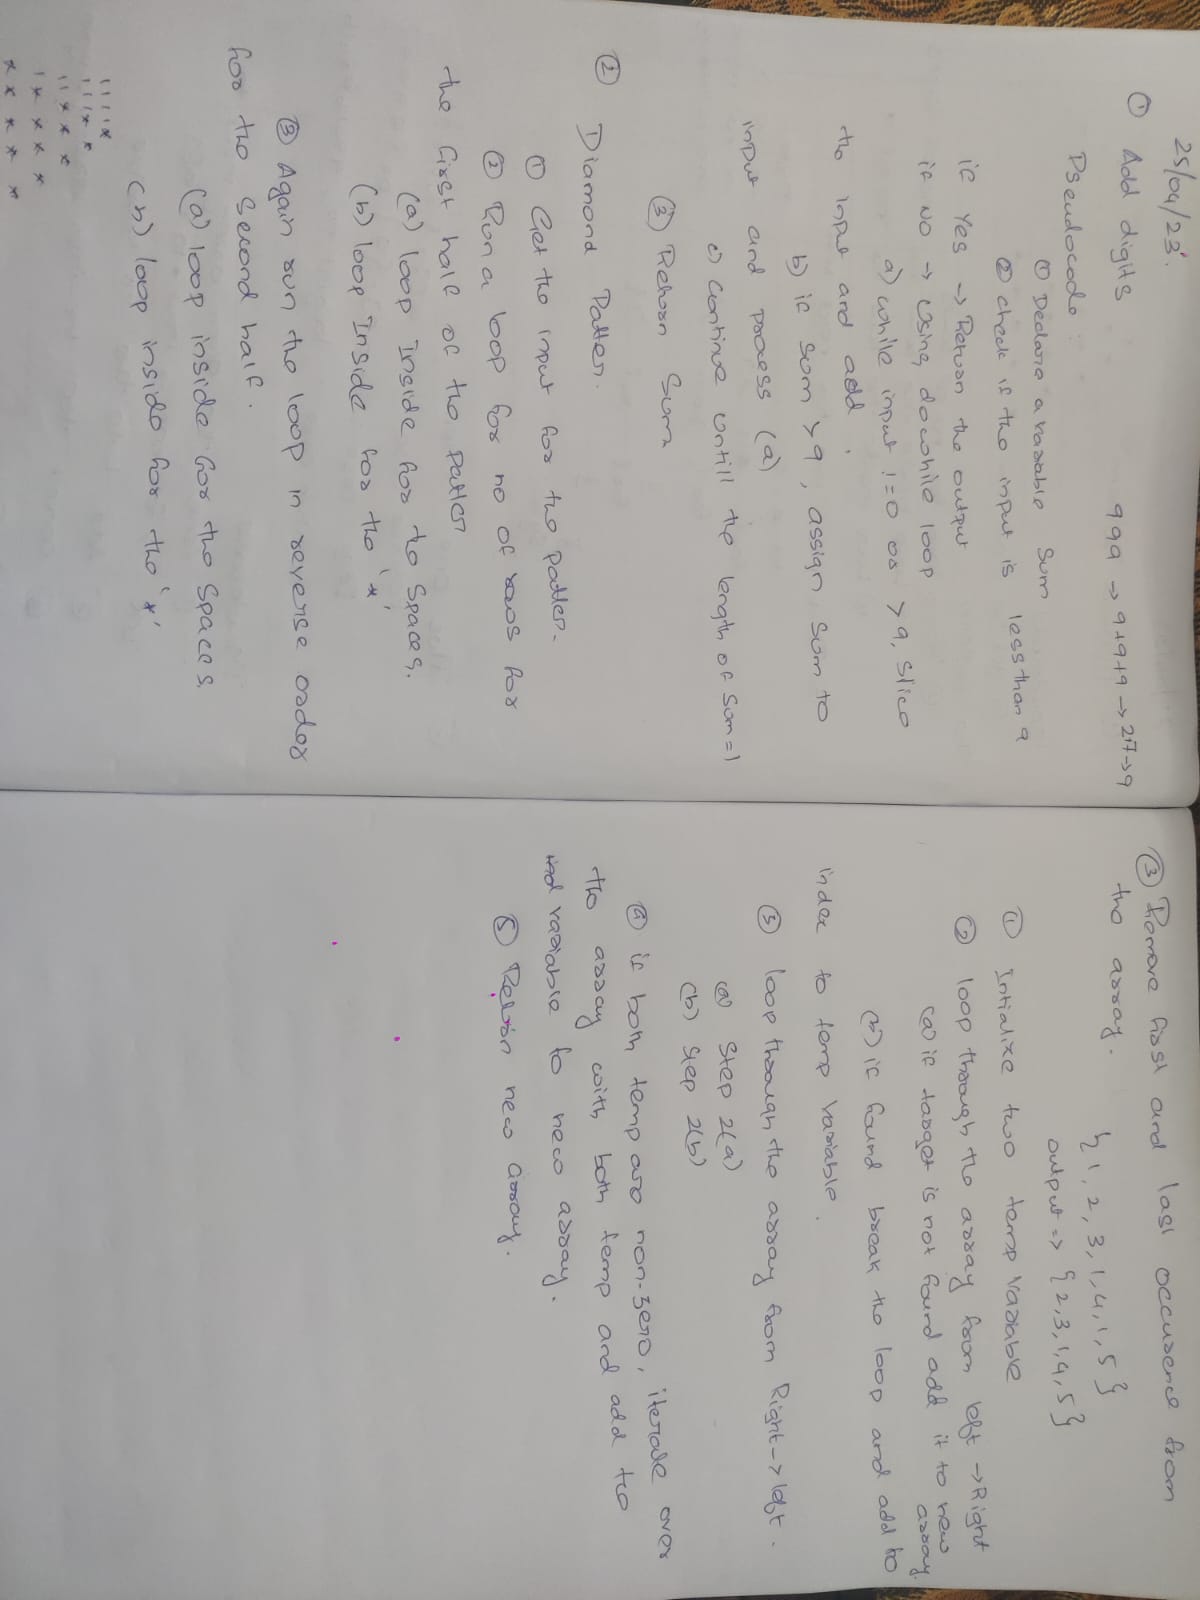 25/04/23.
① Add digits 999 → 9+9+9 → 27 → 9
Pseudocode :
① Declare a variable sum
② check if the input is less than 9
if Yes → Return the output
if No → Using do while loop
a) while input != 0 or > 9, slice
the input and add.
b) if sum > 9, assign sum to
input and process (a)
c) continue untill the length of sum = 1
③ Return Sum
② Diamond Patten.
① Get the input for the patten.
② Run a loop for no of rows for
the first half of the patten
(a) loop inside for the spaces.
(b) loop inside for the '*'
③ Again run the loop in reverse order
for the second half.
(a) loop inside for the spaces
(b) loop inside for the '*'
ı ı ı ı *
ı ı ı * *
ı ı * * *
ı * * * *
* * * * *
③ Remove first and last occurence from
the array.
{ 1, 2, 3, 1, 4, 1, 5 }
output => { 2, 3, 1, 4, 5 }
① Intialize two temp variable
② loop through the array from left → Right
(a) if target is not found add it to new
array.
(b) if found break the loop and add to
index to temp variable.
③ loop through the array from Right → left.
(a) Step 2(a)
(b) step 2(b)
④ if both temp are non-zero, iterate over
the array with both temp and add the
ind variable to new array.
⑤ Return new array.